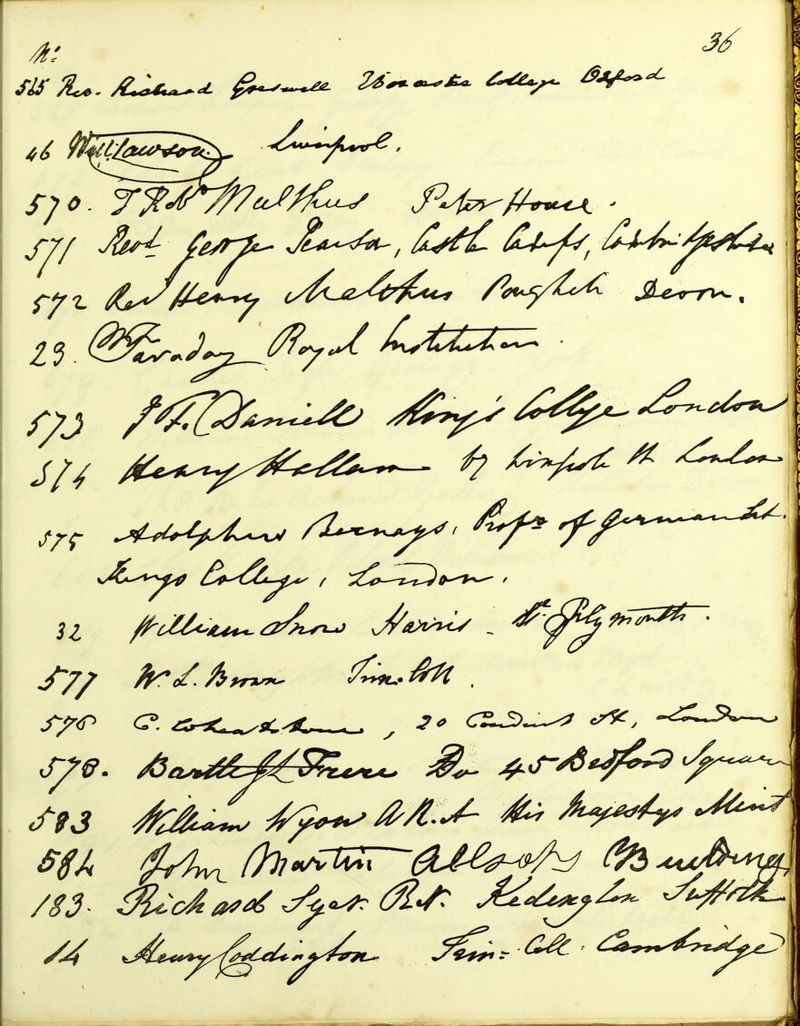 36
No:
565 Rev. Richard Greswell Worcester College Oxford
46 Will. Lawson Liverpool.
570. T Robt Malthus Peter House.
571 Revd George Pearson, Castle Camps, Cambridgeshire
572 Rev Henry Malthus Devon.
23. M Faraday Royal Institution
573 J F. Daniell King's College London
574 Henry Hallam 67 Wimpole St London
575 Adolphus Bernays, Profr of German Lit.
Kings College, London.
32 William Snow Harris Plymouth.
577 W. L. Brown Trin. Coll.
576 C. Wheatstone, 20 Conduit St, London
578. Bartle Frere Do 45 Bedford Square
583 William Wyon A R.A His Majestys Mint
584 John Martin Allsops Buildings
183. Richard Syer. R.N. Kedington Suffolk
14 Henry Coddington Trin= Coll. Cambridge